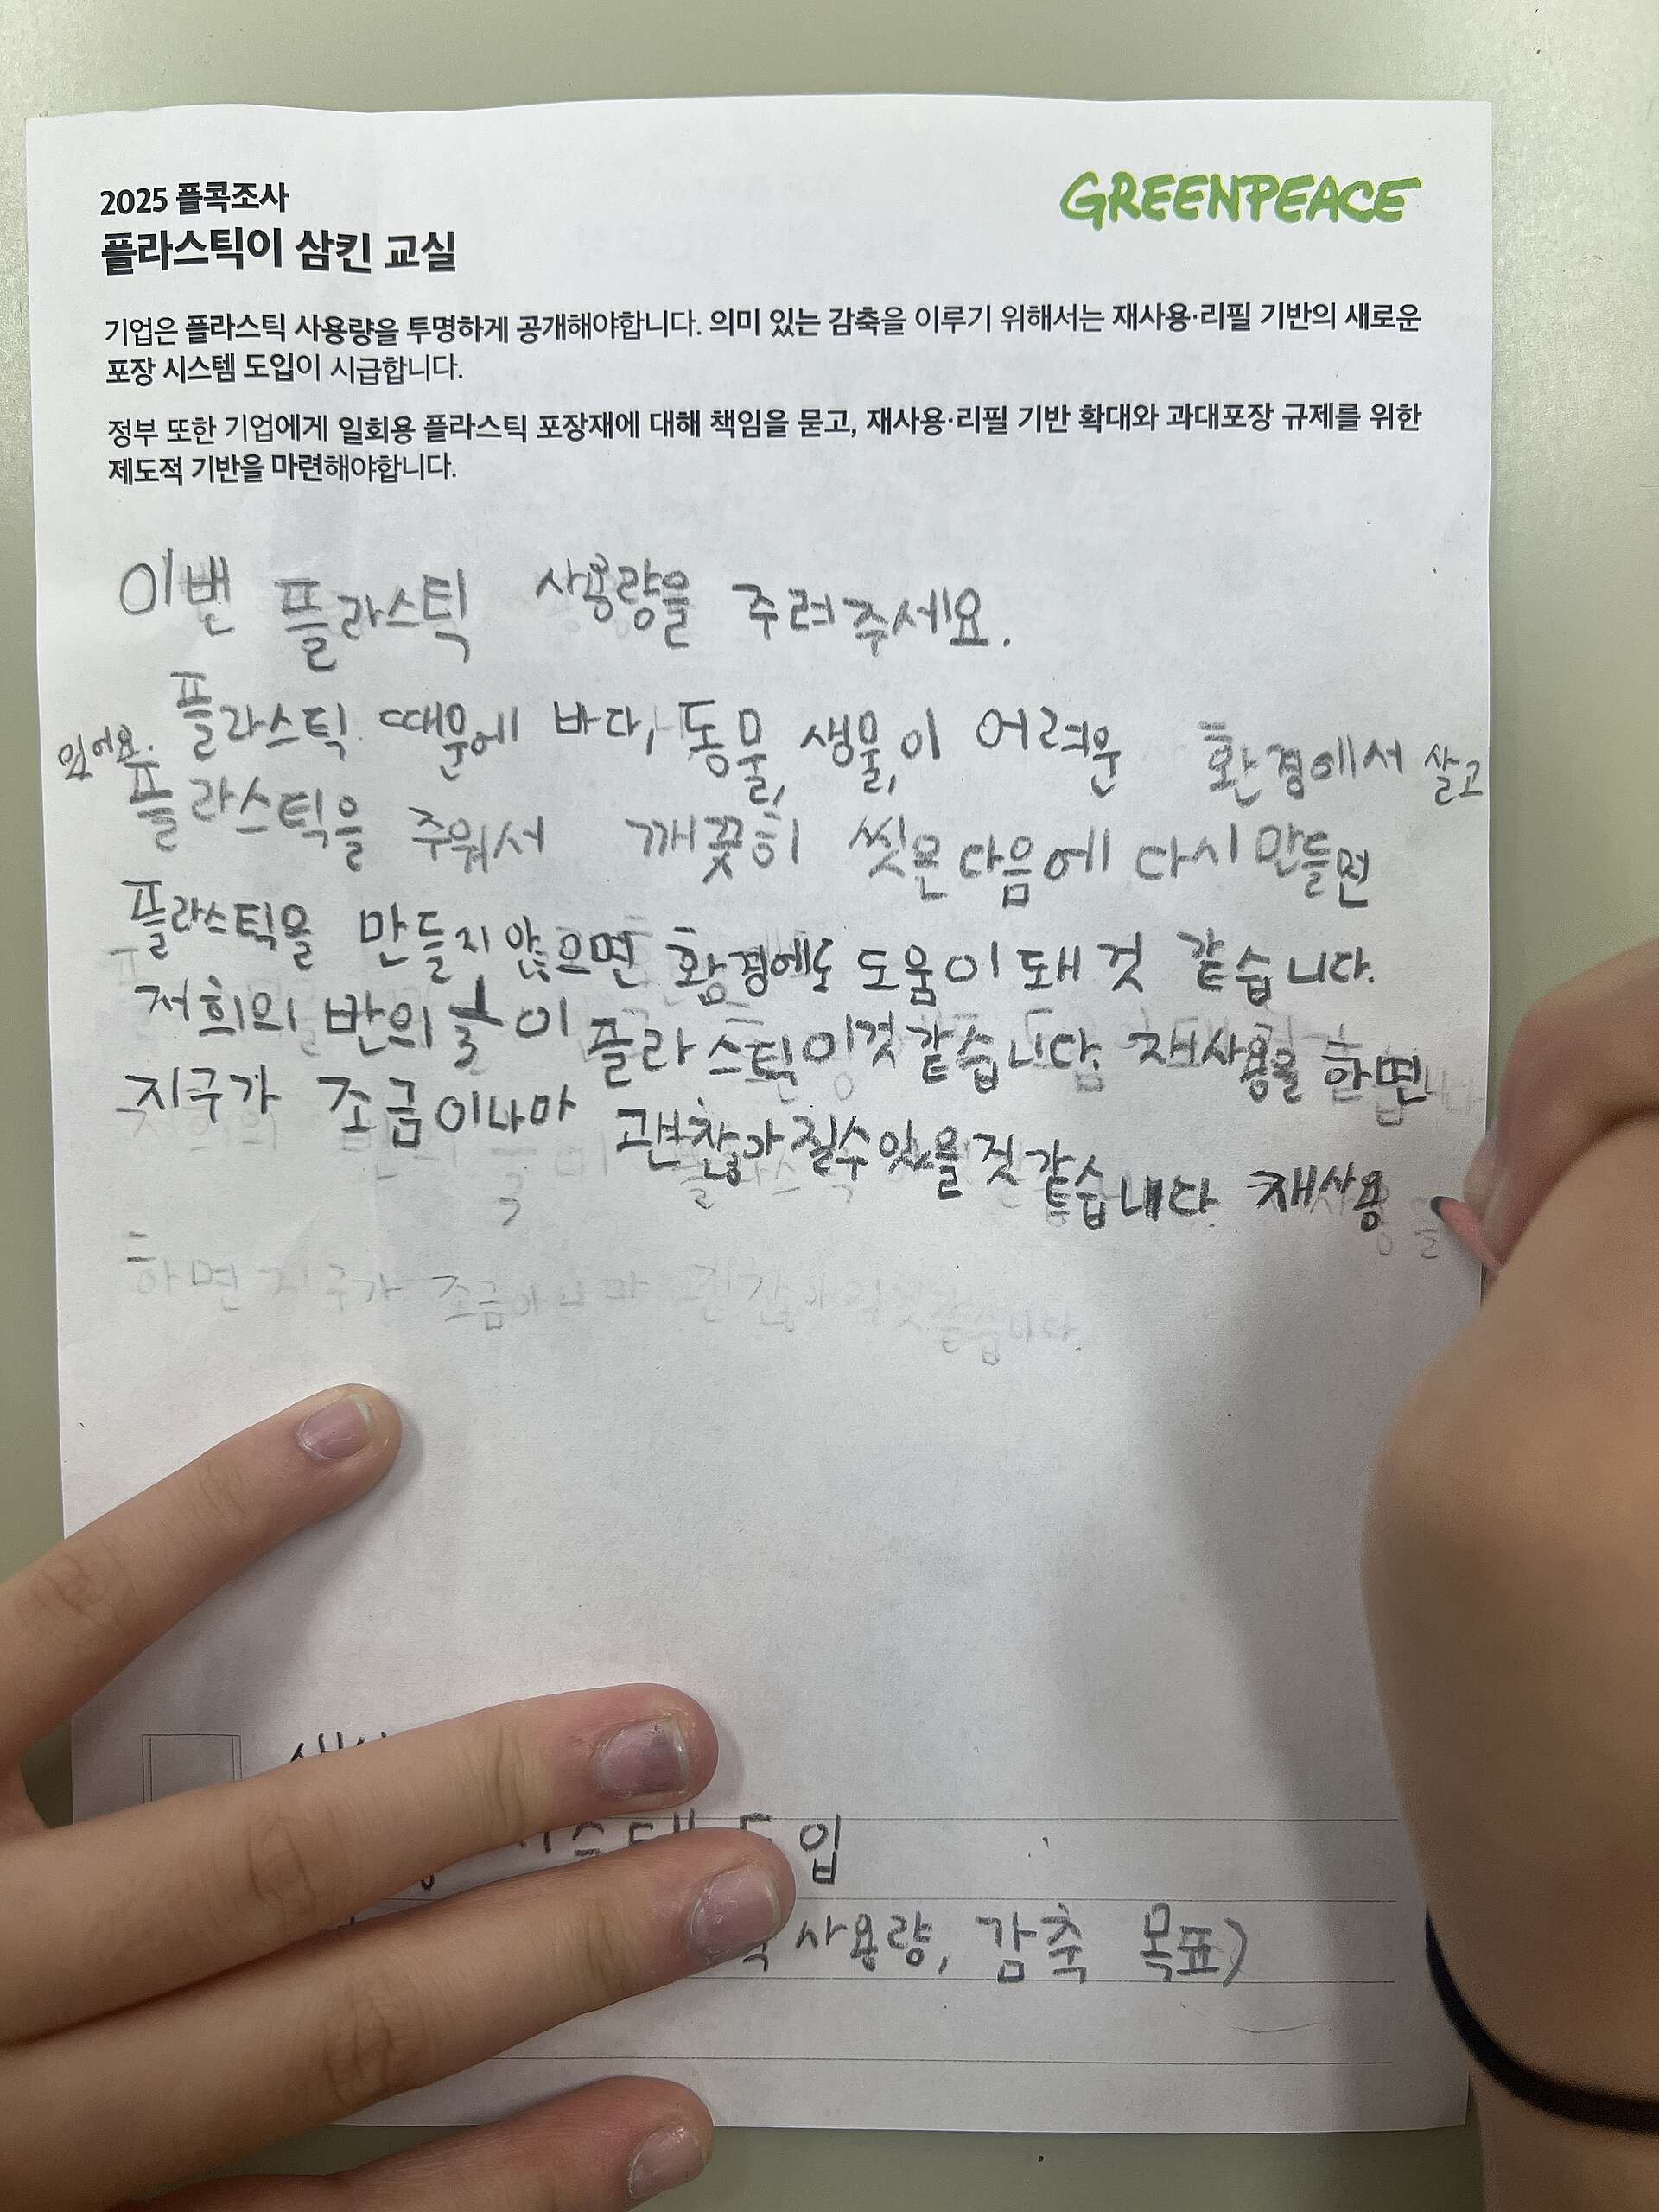 2025 플콕조사
GREENPEACE
플라스틱이 삼킨 교실
기업은 플라스틱 사용량을 투명하게 공개해야합니다. 의미 있는 감축을 이루기 위해서는 재사용·리필 기반의 새로운
포장 시스템 도입이 시급합니다.
정부 또한 기업에게 일회용 플라스틱 포장재에 대해 책임을 묻고, 재사용·리필 기반 확대와 과대포장 규제를 위한
제도적 기반을 마련해야합니다.
이번 플라스틱 사용량을 주려주세요.
플라스틱 때문에 바다, 동물, 생물,이 어려운 환경에서 살고
있어요.
플라스틱을 주워서 깨끗히 씻은다음에 다시 만들면
플라스틱을 만들지 않으면 황경에도 도움이 돼 것 같습니다.
저희의 반의 이 플라스틱이것 같습니다. 재사용을 한면
지구가 조금이나마 괜찮아질수있을것 같습니다. 재사용
하면 지구가 조금이나마
도입
사용량, 감축 목표)